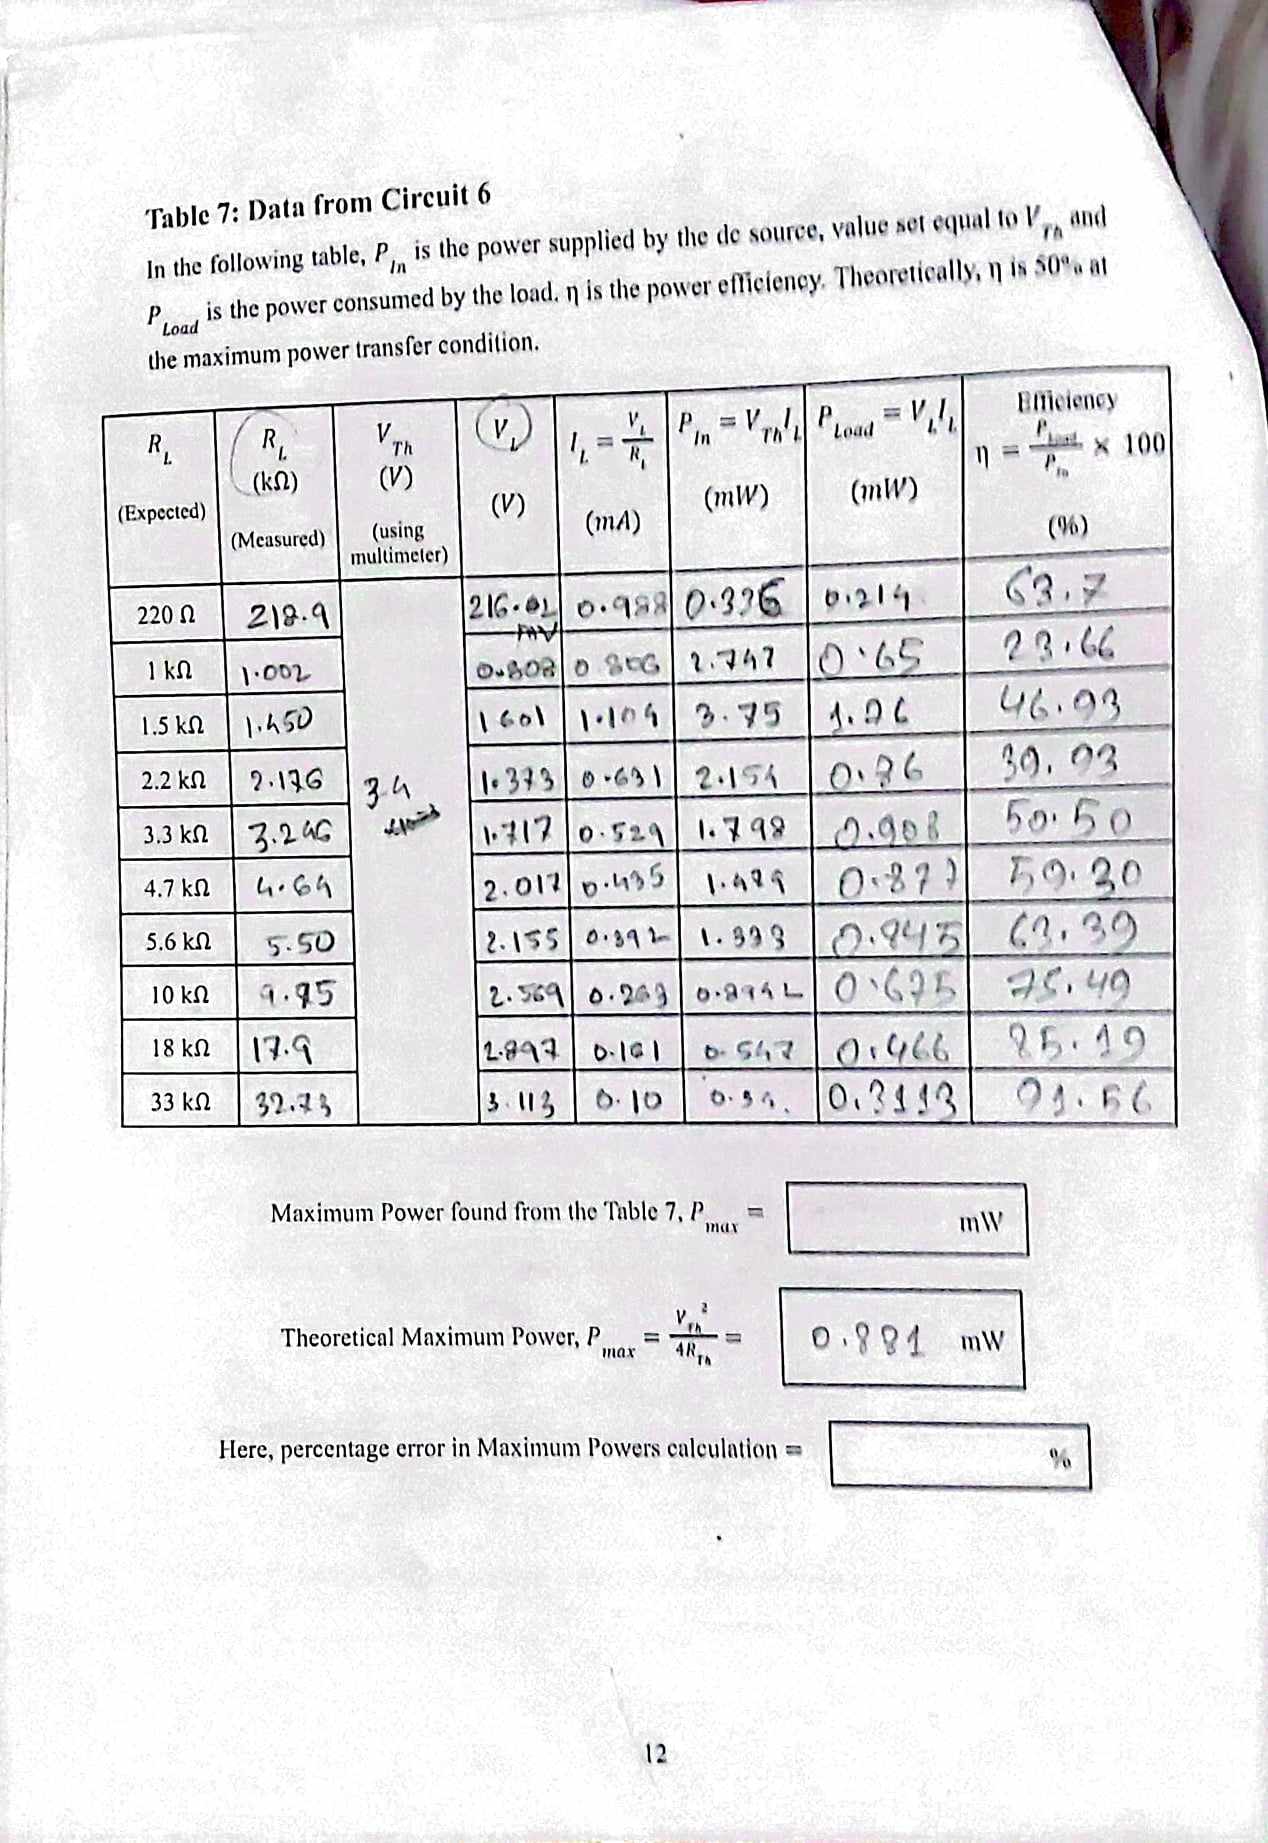 Table 7: Data from Circuit 6
In the following table, P_In is the power supplied by the dc source, value set equal to V_Th and
P_Load is the power consumed by the load. η is the power efficiency. Theoretically, η is 50% at
the maximum power transfer condition.
R_L (Expected) | R_L (kΩ) (Measured) | V_Th (V) (using multimeter) | V_L (V) | I_L = V_L/R_L (mA) | P_In = V_Th I_L (mW) | P_Load = V_L I_L (mW) | Efficiency η = P_Load/P_In × 100 (%)
220 Ω | 218.9 | 216.01 mV | 0.988 | 0.336 | 0.214 | 63.7
1 kΩ | 1.002 | 0.808 | 0.806 | 2.747 | 0.65 | 23.66
1.5 kΩ | 1.450 | 1.601 | 1.104 | 3.75 | 1.76 | 46.93
2.2 kΩ | 2.176 | 3.4 | 1.373 | 0.631 | 2.154 | 0.86 | 39.93
3.3 kΩ | 3.246 | 1.717 | 0.529 | 1.798 | 0.908 | 50.50
4.7 kΩ | 4.64 | 2.017 | 0.435 | 1.479 | 0.877 | 59.30
5.6 kΩ | 5.50 | 2.155 | 0.392 | 1.333 | 0.845 | 63.39
10 kΩ | 9.85 | 2.569 | 0.263 | 0.8942 | 0.675 | 75.49
18 kΩ | 17.9 | 2.897 | 0.161 | 0.547 | 0.466 | 85.19
33 kΩ | 32.73 | 3.113 | 0.10 | 0.34 | 0.3113 | 91.56
Maximum Power found from the Table 7, P_max = mW
Theoretical Maximum Power, P_max = V_Th²/4R_Th = 0.881 mW
Here, percentage error in Maximum Powers calculation = %
12